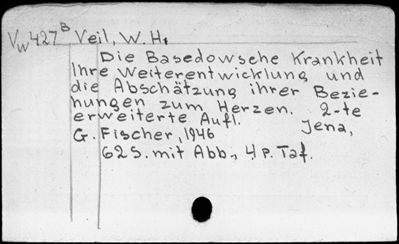 Vw427ᴮ Veil, W. H.
Die Basedowsche Krankheit
Ihre Weiterentwicklung und
die Abschätzung ihrer Bezie-
hungen zum Herzen. 2-te
erweiterte Aufl. Jena,
G. Fischer, 1946
62 S. mit Abb., 4 p. Taf.